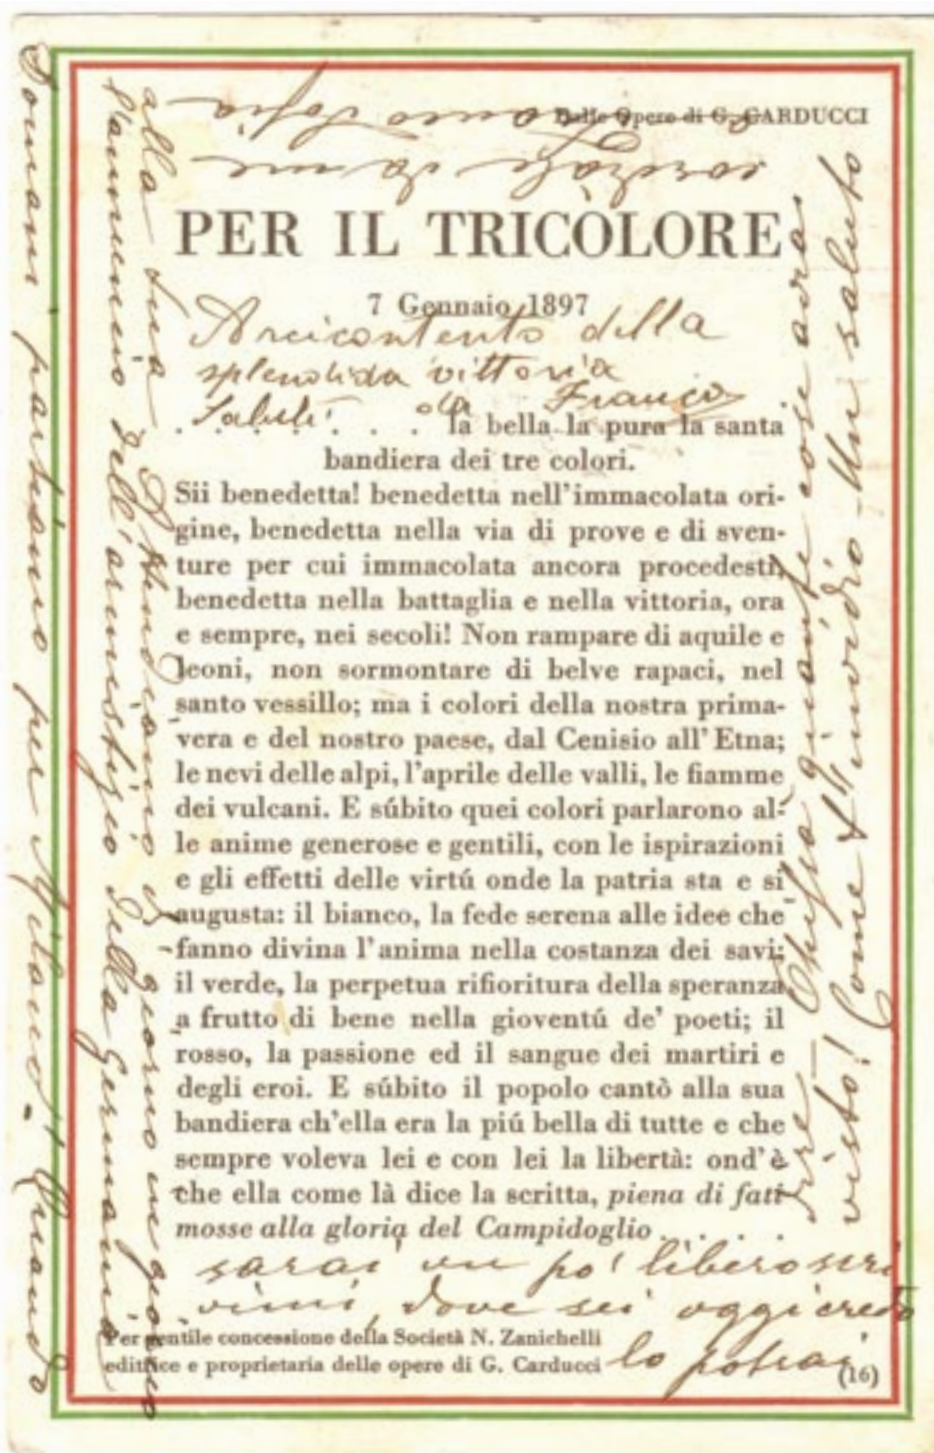 Dalle Opere di G. CARDUCCI
cordiale da me
PER IL TRICOLORE
7 Gennaio 1897
Arcicontento della
splendida vittoria
Saluti da Franco
. . . . . . . la bella la pura la santa
bandiera dei tre colori.
Sii benedetta! benedetta nell'immacolata ori-
gine, benedetta nella via di prove e di sven-
ture per cui immacolata ancora procedesti,
benedetta nella battaglia e nella vittoria, ora
e sempre, nei secoli! Non rampare di aquile e
leoni, non sormontare di belve rapaci, nel
santo vessillo; ma i colori della nostra prima-
vera e del nostro paese, dal Cenisio all'Etna;
le nevi delle alpi, l'aprile delle valli, le fiamme
dei vulcani. E súbito quei colori parlarono al-
le anime generose e gentili, con le ispirazioni
e gli effetti delle virtú onde la patria sta e si
augusta: il bianco, la fede serena alle idee che
fanno divina l'anima nella costanza dei savi;
il verde, la perpetua rifioritura della speranza
a frutto di bene nella gioventú de' poeti; il
rosso, la passione ed il sangue dei martiri e
degli eroi. E súbito il popolo cantò alla sua
bandiera ch'ella era la piú bella di tutte e che
sempre voleva lei e con lei la libertà: ond'è
che ella come là dice la scritta, piena di fati
mosse alla gloria del Campidoglio . . . . .
Per gentile concessione della Società N. Zanichelli
editrice e proprietaria delle opere di G. Carducci
(16)
l'annuncio dell'armistizio della Germania
alla sua di giorno in giorno
Domani partiamo per Milano. Quando
sarai un po' libero scri
vimi, dove sei oggi credo
lo potrai
dire — Chissà quante cose avrai
visto! Come t'invidio. Un saluto